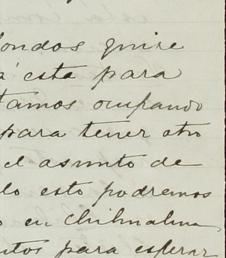 ondos quise
á esta para
tamos ocupando
para tener otro
el asunto de
lo esto podremos
o en Chihuahua,
ntos para esperar